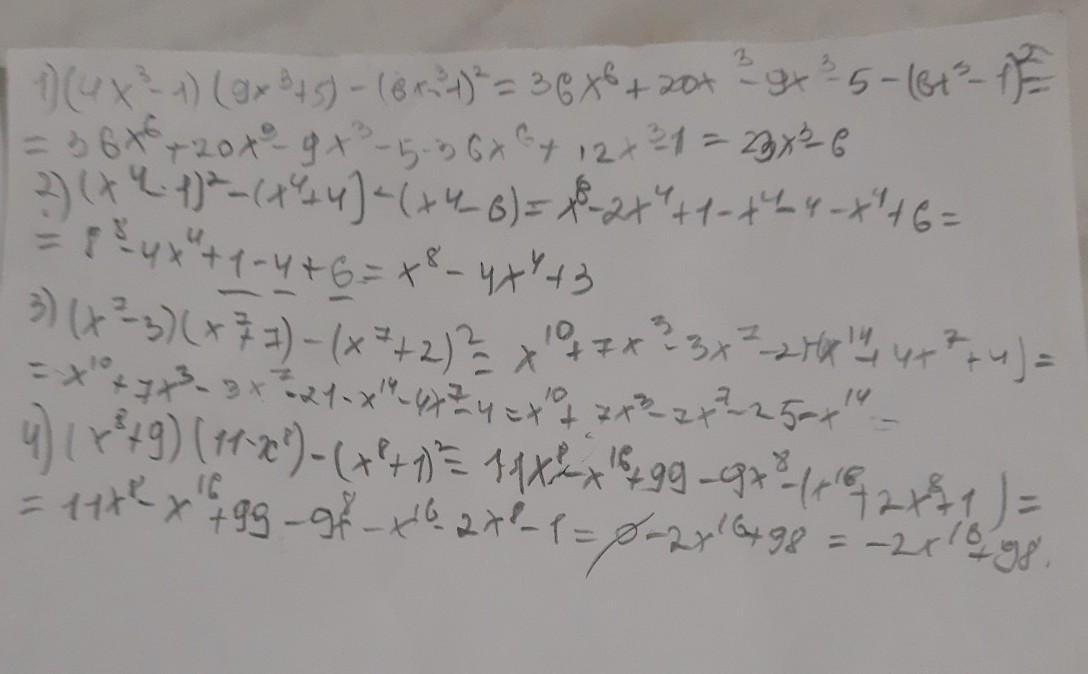 1) (4x³-1)(9x³+5)-(6x³-1)²=36x⁶+20x³-9x³-5-(6x³-1)²=
=36x⁶+20x³-9x³-5-36x⁶+12x³-1=23x³-6
2) (x⁴-1)²-(x⁴+4)-(x⁴-6)=x⁸-2x⁴+1-x⁴-4-x⁴+6=
= ⁸-4x⁴+1-4+6=x⁸-4x⁴+3
3) (x⁷-3)(x⁷+7)-(x⁷+2)²=x¹⁰+7x³-3x⁷-21-(x¹⁴+4x⁷+4)=
=x¹⁰+7x³-3x⁷-21-x¹⁴-4x⁷-4=x¹⁰+7x³-7x⁷-25-x¹⁴=
4) (x⁸+9)(11-x⁸)-(x⁸+1)²=11x⁸-x¹⁶+99-9x⁸-(x¹⁶+2x⁸+1)=
=11x⁸-x¹⁶+99-9x⁸-x¹⁶-2x⁸-1=0-2x¹⁶+98=-2x¹⁶+98.